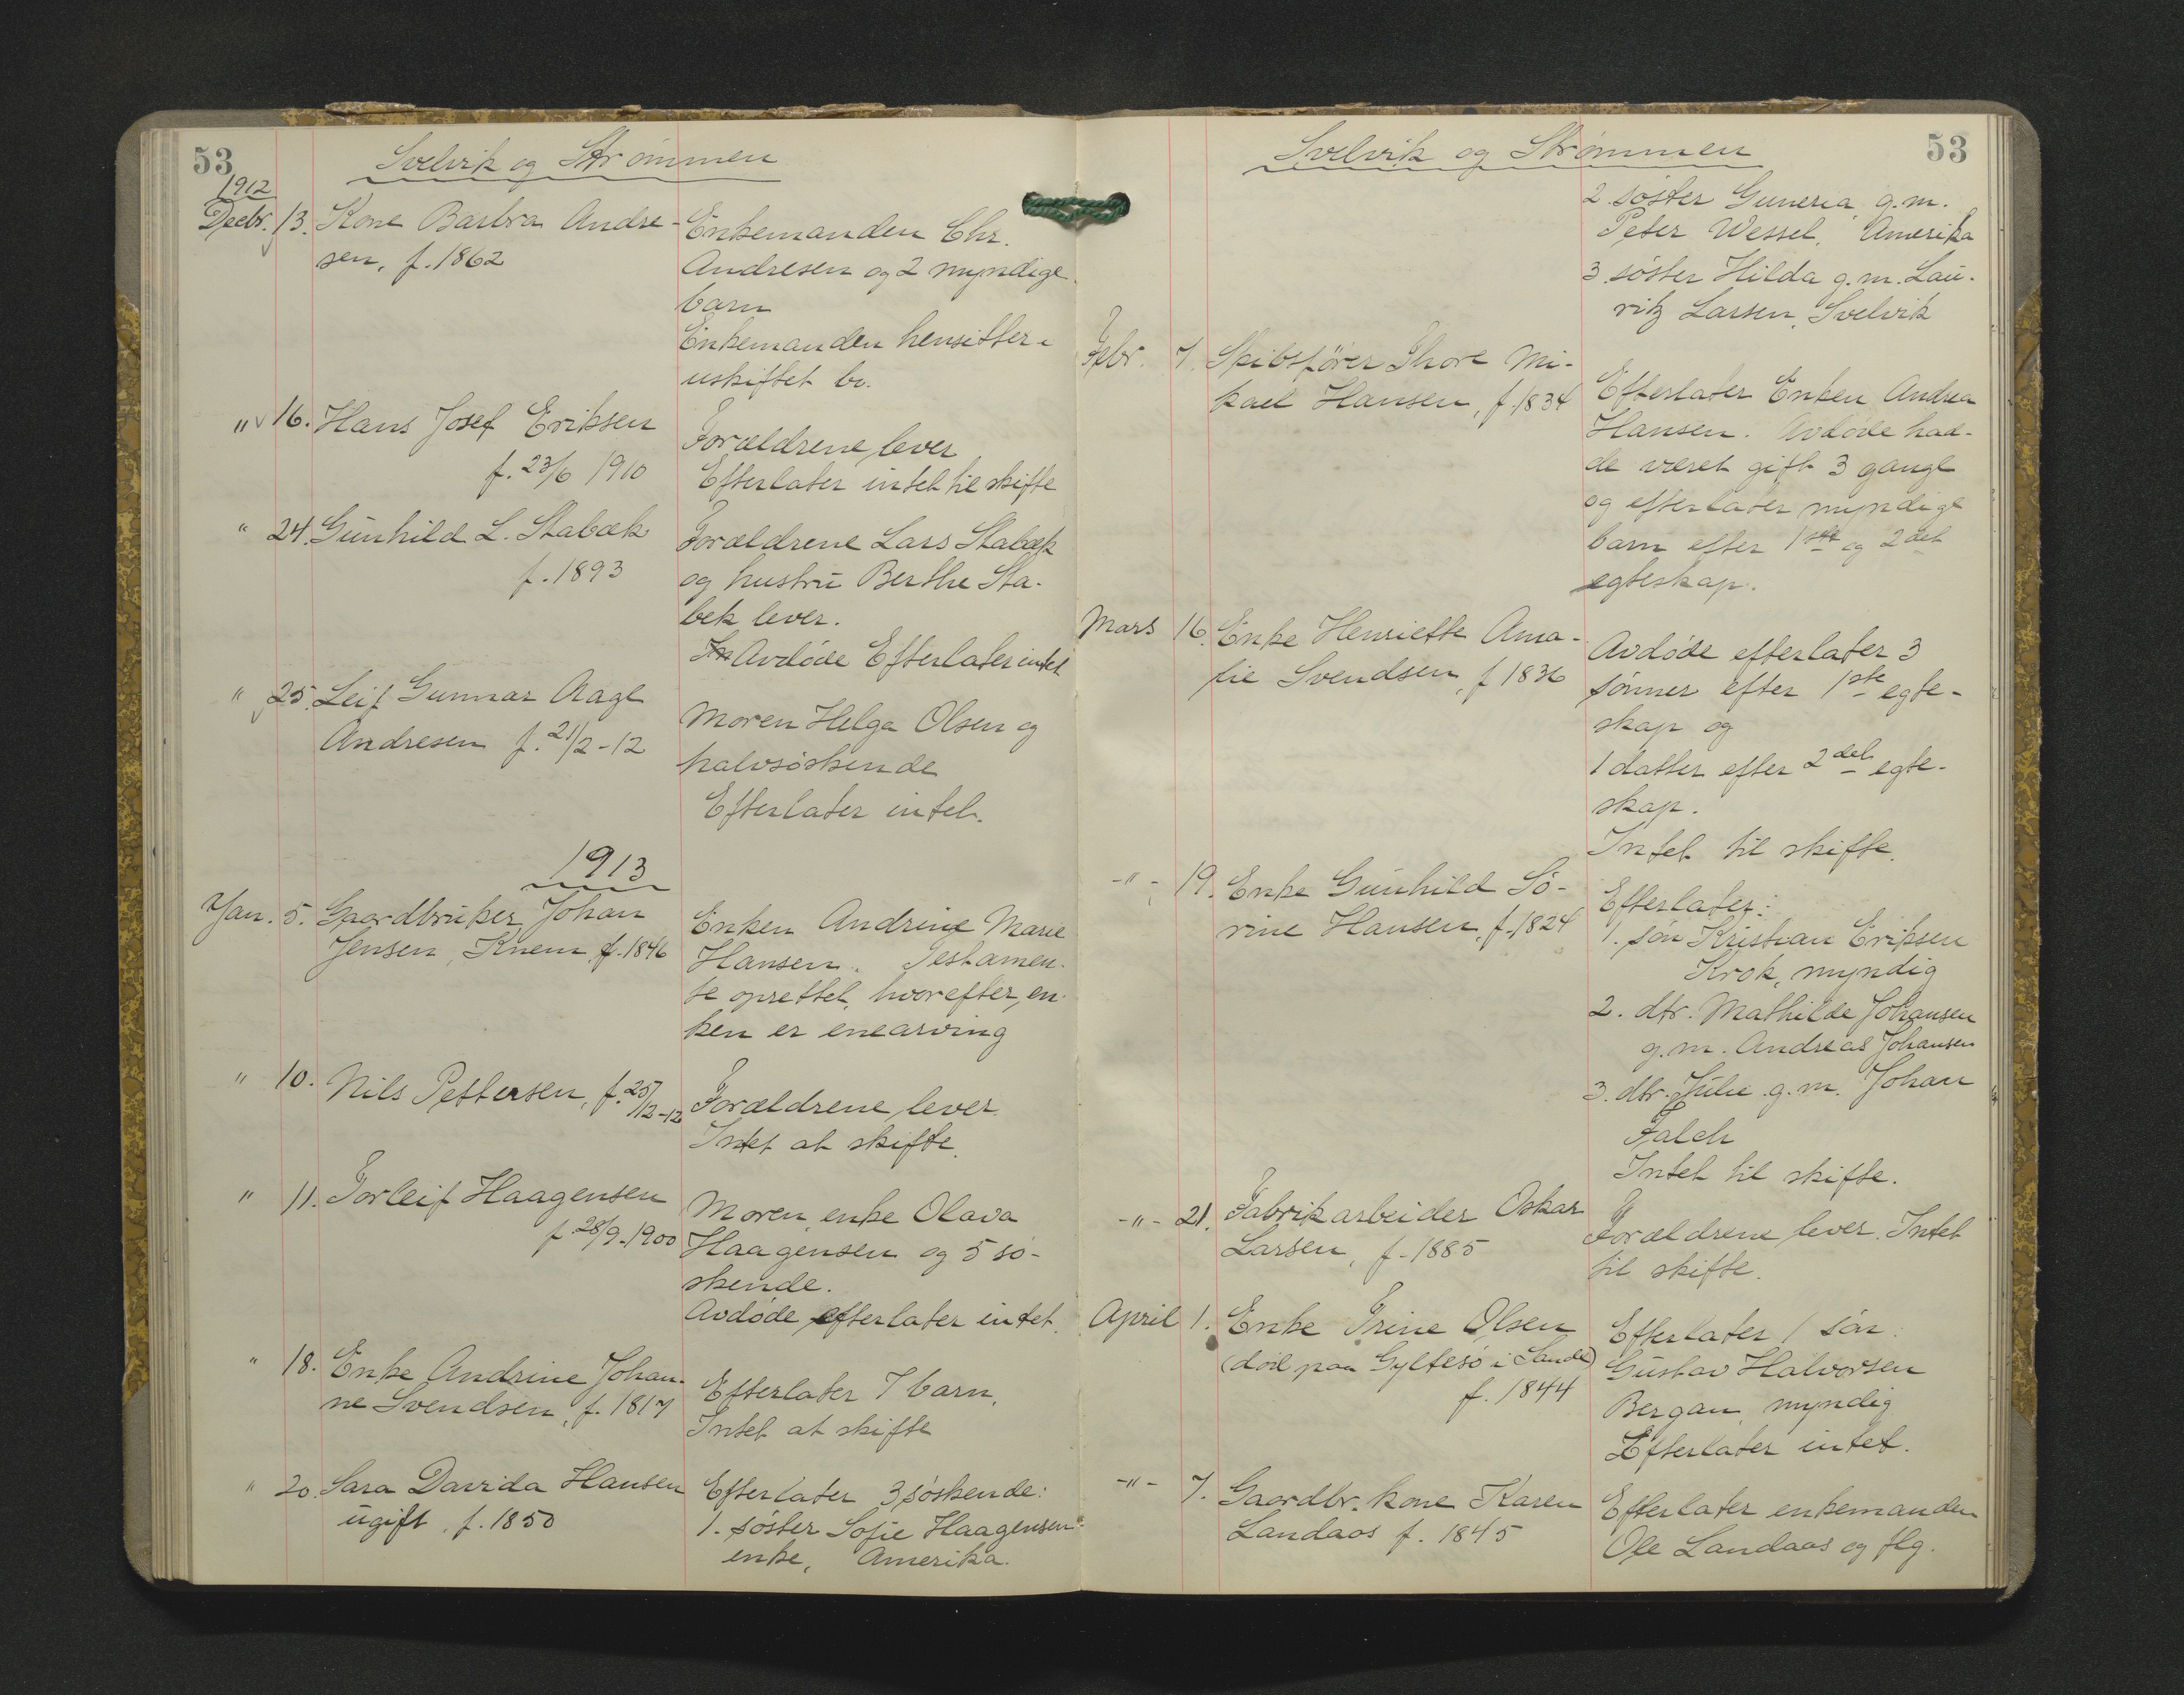 53
Svelvik og Strømmen
1912
Decbr. 13. Kone Barbra Andre-
sen, f. 1862
Enkemanden Chr.
Andresen og 2 myndige
barn
Enkemanden hensitter i
uskiftet bo.
" 16. Hans Josef Eriksen
f. 23/6 1910
Forældrene lever
Efterlater intet til skifte
" 24. Gunhild L. Stabæk
f. 1893
Forældrene Lars Stabæk
og hustru Berthe Sta-
bek lever.
Avdøde Efterlater intet
" 25. Leif Gunnar Aage
Andresen f. 21/2-12
Moren Helga Olsen og
halvsøskende
Efterlater intet.
1913
Jan. 5. Gaardbruker Johan
Jensen, Knem f. 1846
Enken Andrine Marie
Hansen. Testamen-
te oprettet, hvorefter en-
ken er enearving
" 10. Nils Pettersen, f. 25/12-12
Forældrene lever.
Intet at skifte.
" 11. Torleif Haagensen
f. 28/9-1900
Moren enke Olava
Haagensen og 5 sø-
skende.
Avdøde efterlater intet.
" 18. Enke Andrine Johan-
ne Svendsen, f. 1817
Efterlater 7 barn.
Intet at skifte
" 20. Sara Davida Hansen
ugift, f. 1850
Efterlater 3 søskende:
1. søster Sofie Haagensen
enke, Amerika.
53
Svelvik og Strømmen
2 søster Guneria g.m.
Peter Wessel, Amerika
3. søster Hilda g.m. Lau-
ritz Larsen, Svelvik
Febr. 7. Skibsfører Thore Mi-
kael Hansen, f. 1834
Efterlater Enken Andrea
Hansen. Avdøde had-
de været gift 3 gange
og efterlater myndige
barn efter 1ste og 2det
egteskap.
Mars 16. Enke Henriette Ama-
lie Svendsen, f 1836
Avdøde efterlater 3
sønner efter 1ste egte-
skap og
1 datter efter 2det egte-
skap.
Intet til skifte.
-"- 19. Enke Gunhild Sø-
rine Hansen, f. 1824
Efterlater:
1. søn Kristian Eriksen
Krok, myndig
2. dtr. Mathilde Johansen
g.m. Andreas Johansen
3. dtr. Julie g.m. Johan
Falch
Intet til skifte.
-"- 21. Fabrikarbeider Oskar
Larsen, f. 1885
Forældrene lever. Intet
til skifte.
April 1. Enke Trine Olsen
(død paa Gyltesø i Sande)
f. 1844
Efterlater 1 søn:
Gustav Halvorsen
Bergan, myndig
Efterlater intet.
-"- 7. Gaardbr. kone Karen
Landaas f. 1845
Efterlater enkemanden
Ole Landaas og flg.